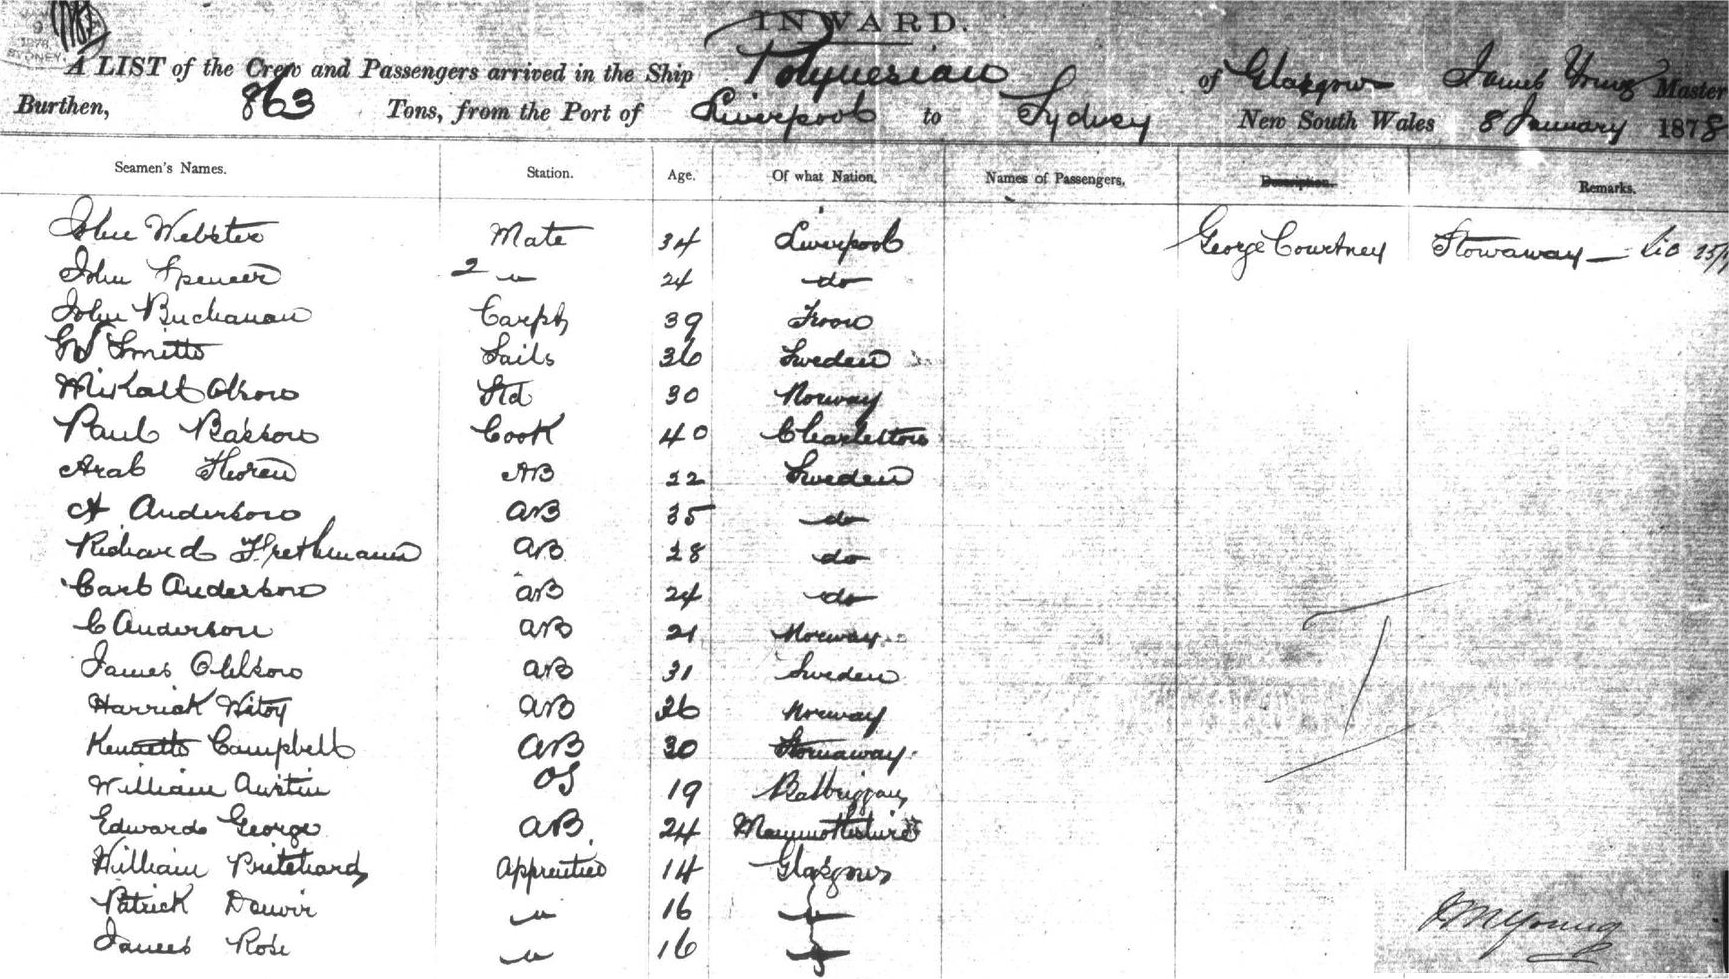 INWARD.
A LIST of the Crew and Passengers arrived in the Ship Polynesian of Glasgow James Young Master
Burthen, 863 Tons, from the Port of Liverpool to Sydney New South Wales 8 January 1878
Seamen's Names. Station. Age. Of what Nation. Names of Passengers. Description. Remarks.
John Webster Mate 34 Liverpool George Courtney Stowaway —
John Spencer 2 " 24 do
John Buchanan Carptr 39 Troon
Smith Sails 36 Sweden
Olson Std 30 Norway
Paul Basson Cook 40 Charleston
AB 22 Sweden
A Anderson AB 35 do
Richard AB 28 do
Carl Anderson AB 24 do
C Anderson AB 21 Norway
James AB 31 Sweden
AB 26 Norway
Kenneth Campbell AB 30 Stornaway
William Austin OS 19 Balbriggan
Edward George AB 24
William Pritchard Apprentice 14 Glasgow
Patrick " 16 "
James Rose " 16 "
J M Young